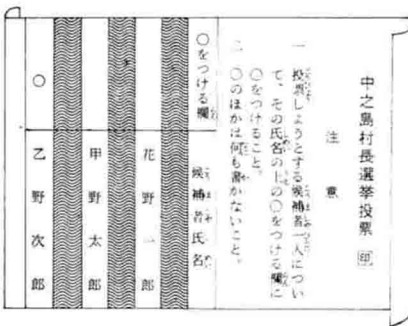 中之島村長選挙投票 印
注意
一 投票しようとする候補者一人につい
て、その氏名の上の〇をつける欄に
〇をつけること。
二 〇のほかは何も書かないこと。
〇をつける欄 候補者氏名
花野一郎
甲野太郎
〇 乙野次郎